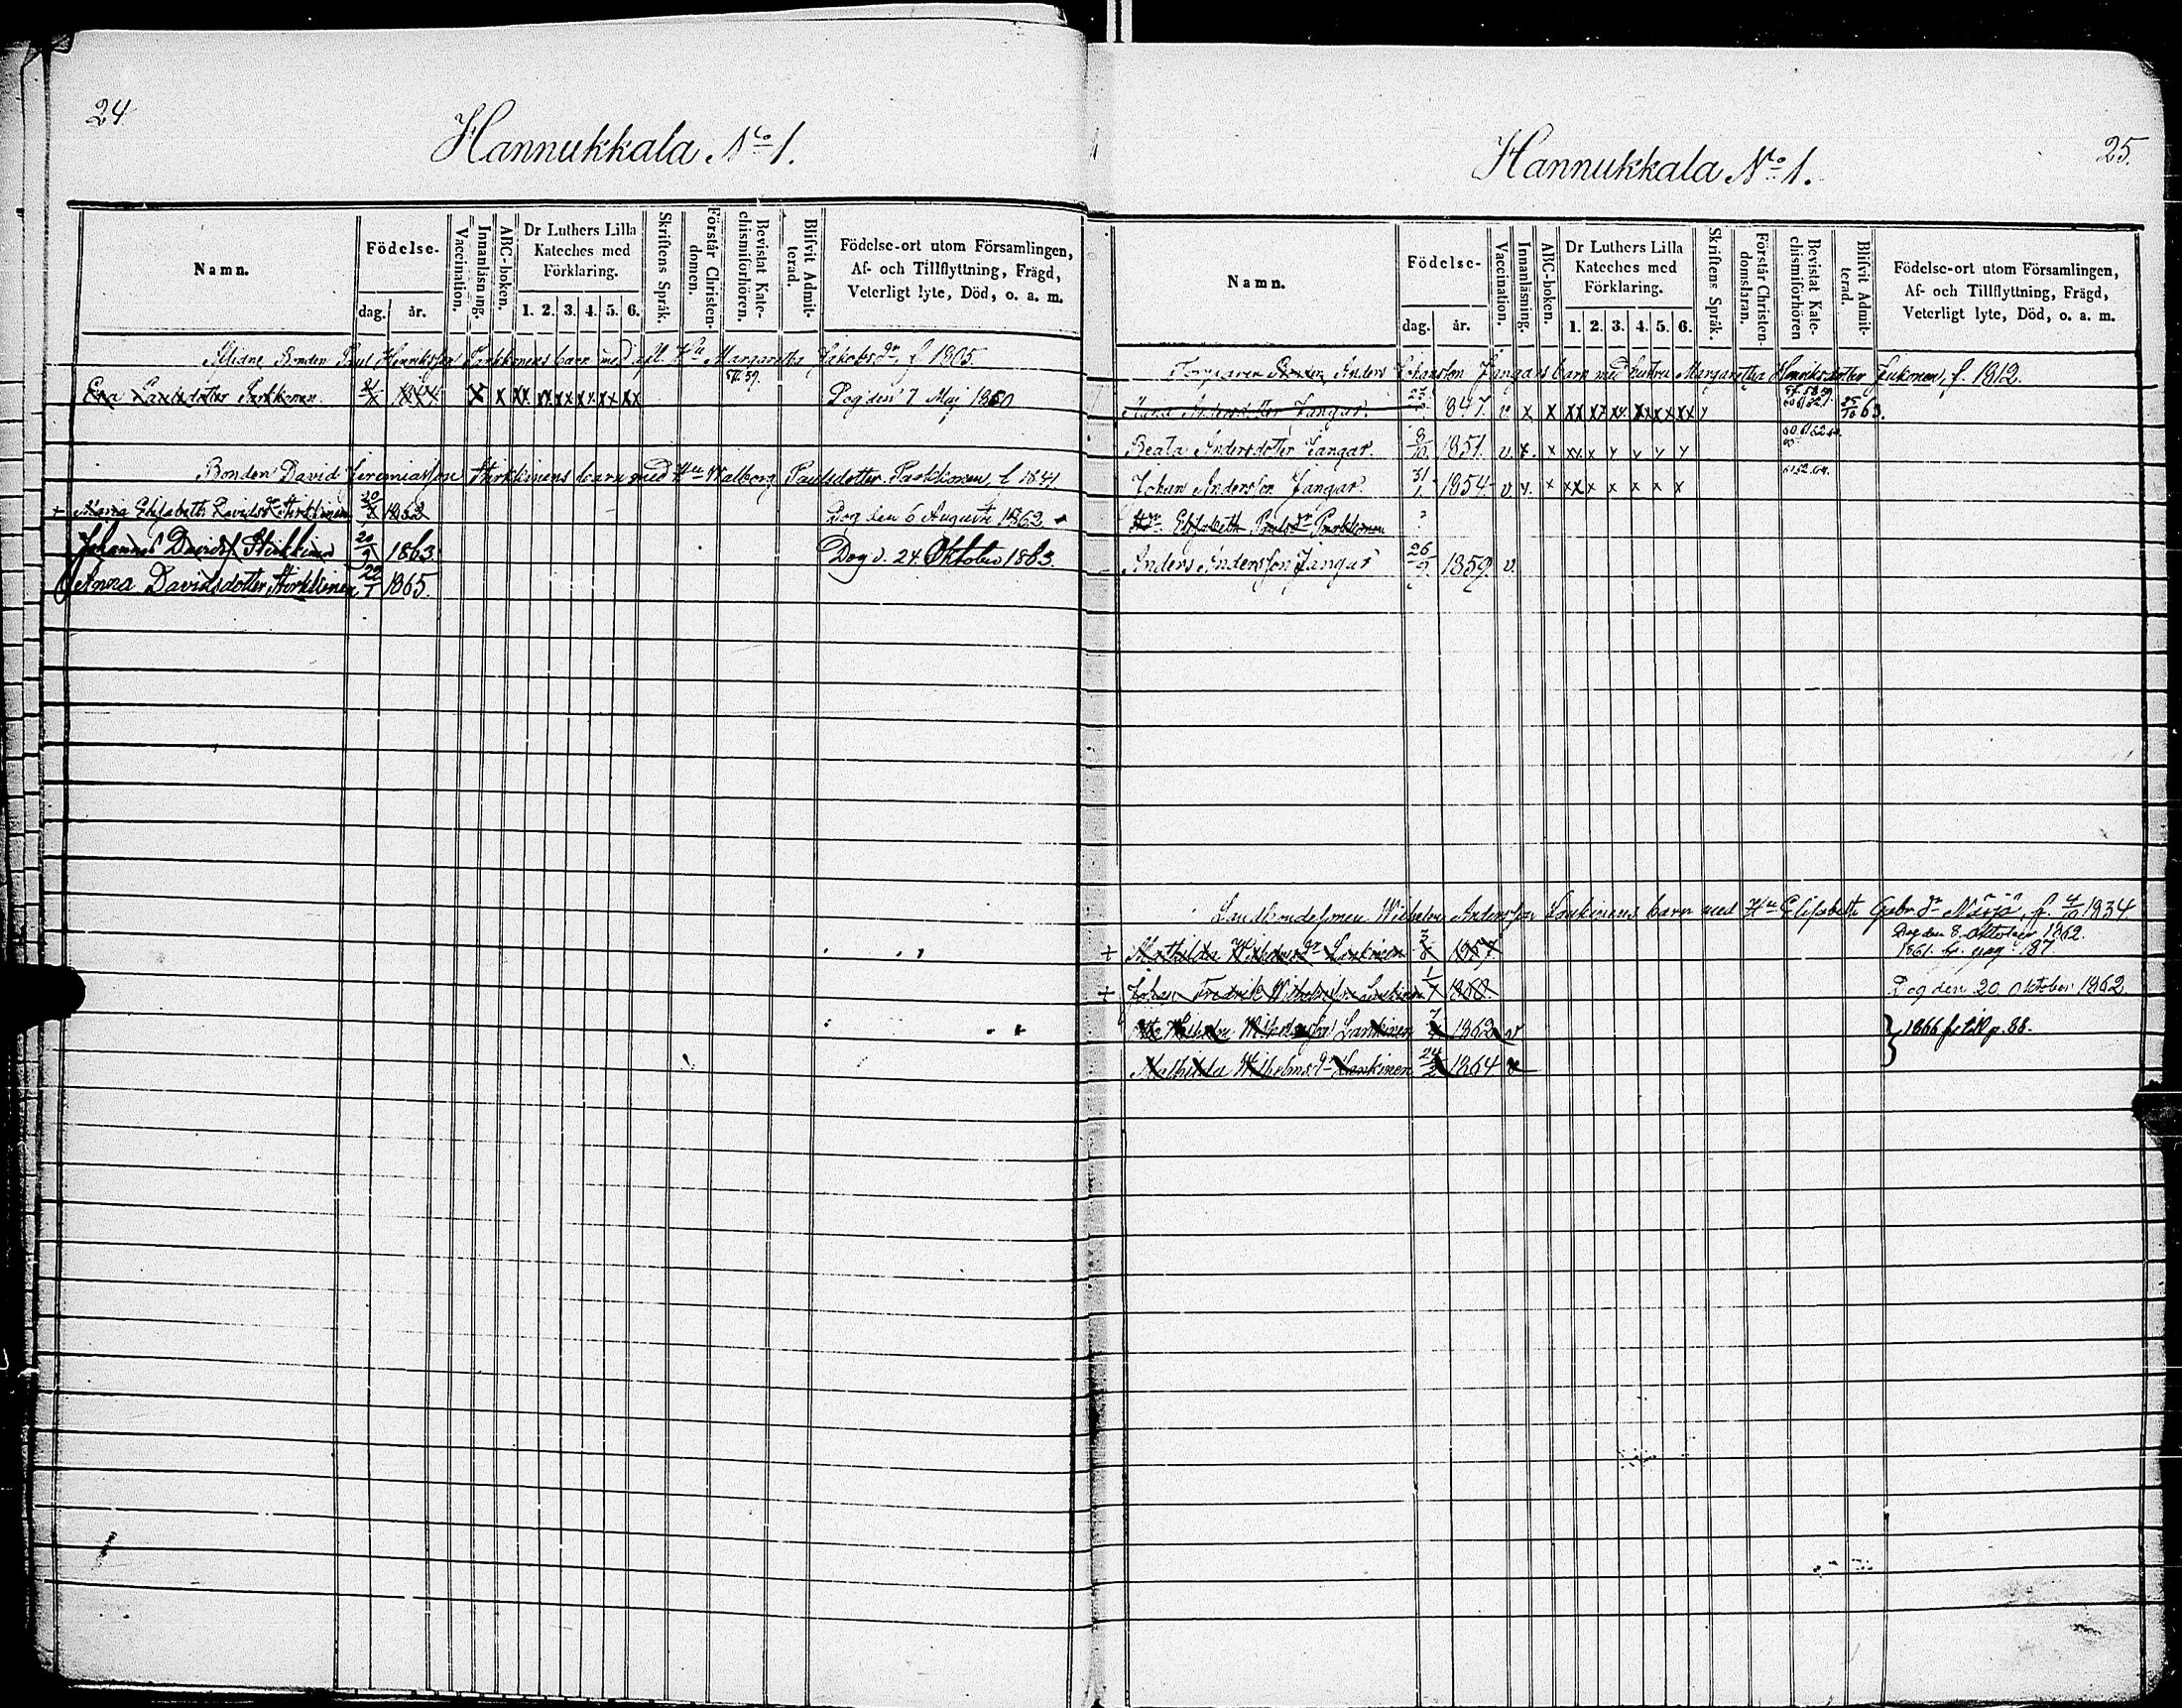 24
Hannukkala No 1.
Namn.
Födelse-
dag.
år.
Vaccination.
Innanläsning.
ABC-boken.
Dr Luthers Lilla
Kateches med
Förklaring.
1. 2. 3. 4. 5. 6.
Skriftens Språk.
Förstår Christen-
domen.
Bevistat Kate-
chismiförhören.
Blifvit Admit-
terad.
Födelse-ort utom Församlingen,
Af- och Tillflyttning, Frägd,
Veterligt lyte, Död, o. a. m.
Aflidne Bonden Paul Henriksson Parkkonens barn med afl. Hu Margaretha Jakobsdr, f. 1805.
Eva Paulsdotter Parkkonen x xx xx xx xx xx xx Dog den 7 Maj 1860
Bonden David Jeremiasson Stirkkinens barn med Hu Walborg Paulsdotter Parkkonen f. 1841
+ Maria Elisabeth Davidsdr Stirkkinen 1862 Dog den 6 Augusti 1862
Johannes Davidss. Stirkkinen 20/9 1863 Dog d. 24 Oktober 1863.
Anna Davidsdotter Stirkkinen 22/1 1865.
25.
Hannukkala No 1.
Namn.
Födelse-
dag.
år.
Vaccination.
Innanläsning.
ABC-boken.
Dr Luthers Lilla
Kateches med
Förklaring.
1. 2. 3. 4. 5. 6.
Skriftens Språk.
Förstår Christen-
domsläran.
Bevistat Kate-
chismiförhören
Blifvit Admit-
terad.
Födelse-ort utom Församlingen,
Af- och Tillflyttning, Frägd,
Veterligt lyte, Död, o. a. m.
Torparen Bonden Anders Johansson Zangars barn med hustru Margaretha Henriksdotter f. 1812.
Andersdotter Zangar. 847. v x x xx
Beata Andersdotter Zangar. 8/10 1851. v. x. x xx x
Johan Andersson Zangar. 31/1 1854 v x xx x x x x x
Elisabeth Paulsdr Parkkonen
Anders Andersson Zangar 26/9 1859. v.
Landbondesonen Wilhelm Andersson Lankinens barn med Hu Elisabeth Gabr.dr f. 4/10 1834.
Dog den 8 Oktober 1862.
+ Mathilda Wilhelmsdr Lankinen 1857 1861 fr. pag. 87.
+ Johan Fredrik Wilhelmss. Lankinen 1/7 1860. Dog den 20 Oktober 1862
Wilhelm Wilhelmsson Lankinen 1862 v } 1866 fr till p. 88.
Mathilda Wilhelmsdr Lankinen 24/2 1864 v